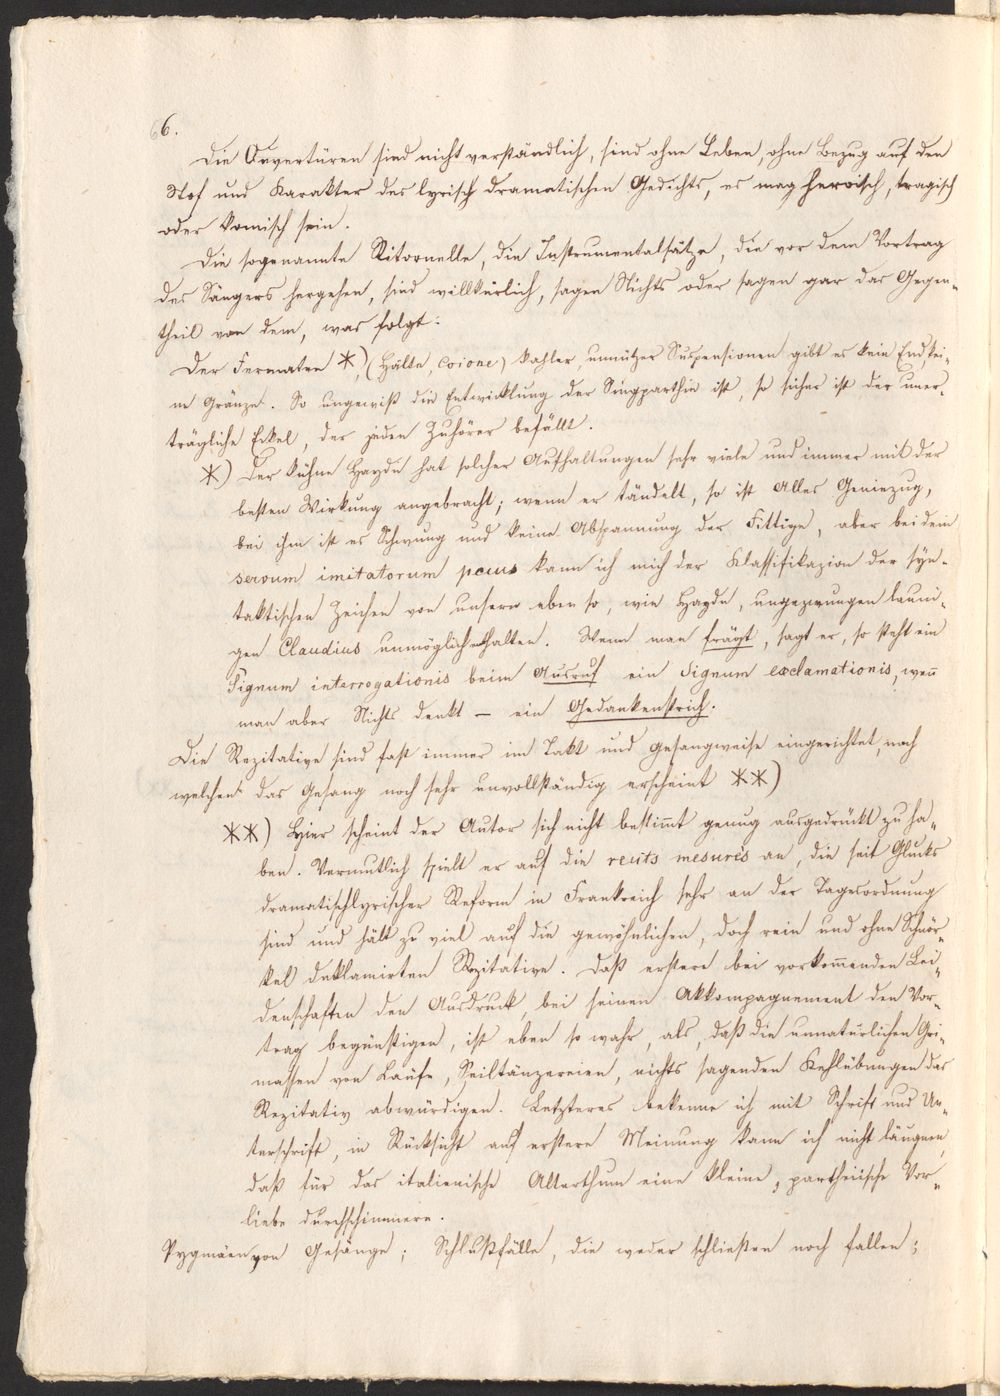 66.
Die Ouvertüren sind nicht verständlich, sind ohne Leben, ohne Bezug auf den
Stof und Karakter des lyrisch dramatischen Gedichts, es mag heroisch, tragisch
oder komisch sein.
Die sogenannte Ritornelle, die Instrumentalsätze, die vor dem Vortrag
des Sängers hergehen, sind willkürlich, sagen Nichts oder sagen gar das Gegen-
theil von dem, was folgt.
Der Fermaten *), (Hälte, coione) kahler, unnützer Suspensionen gibt es kein End kei-
ne Gränze. So ungewiß die Entwicklung der Singparthie ist, so sicher ist der uner-
trägliche Eckel, der jeden Zuhörer befällt.
*) Der kühne Haydn hat solcher Aufhaltungen sehr viele und immer mit der
besten Wirkung angebracht; wenn er tändelt, so ist Alles Geniezug,
bei ihm ist es Schwung und keine Abspannung der Fittige, aber bei dem
servum imitatorum pecus kann ich mich der Klassifikazion der syn-
taktischen Zeichen von unserm eben so, wie Haydn, ungezwungen launi-
gen Claudius unmöglich enthalten. Wenn man frägt, sagt er, so steht ein
Signum interrogationis beim Ausruf ein Signum exclamationis, wen̄
man aber Nichts denkt – ein Gedankenstrich.
Die Rezitative sind fast immer im Takt und gesangweise eingerichtet, nach
welchem das Gesang noch sehr unvollständig erscheint **)
**) Hier scheint der Autor sich nicht bestim̄t genug ausgedrückt zu ha-
ben. Vermutlich spielt er auf die recits mesurés an, die seit Glucks
dramatischlyrischer Reform in Frankreich sehr an der Tagesordnung
sind und hält zu viel auf die gewöhnlichen, doch rein und ohne Schnör-
kel deklamirten Rezitative. Daß erstere bei vorkom̄enden Lei-
denschaften den Ausdruck, bei seinen Akkompagnement den Vor-
trag begünstigen, ist eben so wahr, als, daß die unnatürlichen Gri-
massen von Läufe, Seiltänzereien, nichts sagenden Kehlübungen das
Rezitativ abwürdigen. Letzteres bekenne ich mit Schrift und Un-
terschrift, in Rücksicht auf erstere Meinung kann ich nicht läugnen,
daß für das italienische Alterthum eine kleine, partheiische Vor-
liebe durchschimmere.
Pygmäen von Gesänge; Schlußfälle, die weder schließen noch fallen;